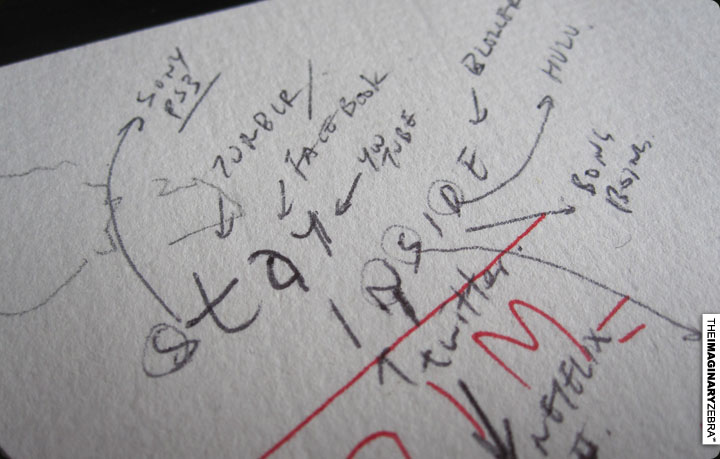 SONY
PS3
TUMBLR
FACEBOOK
YOU
TUBE
BLOGGER
HULU.
BOING
BOING.
stay
INSIDE
twitter.
NETFLIX
THEIMAGINARYZEBRA